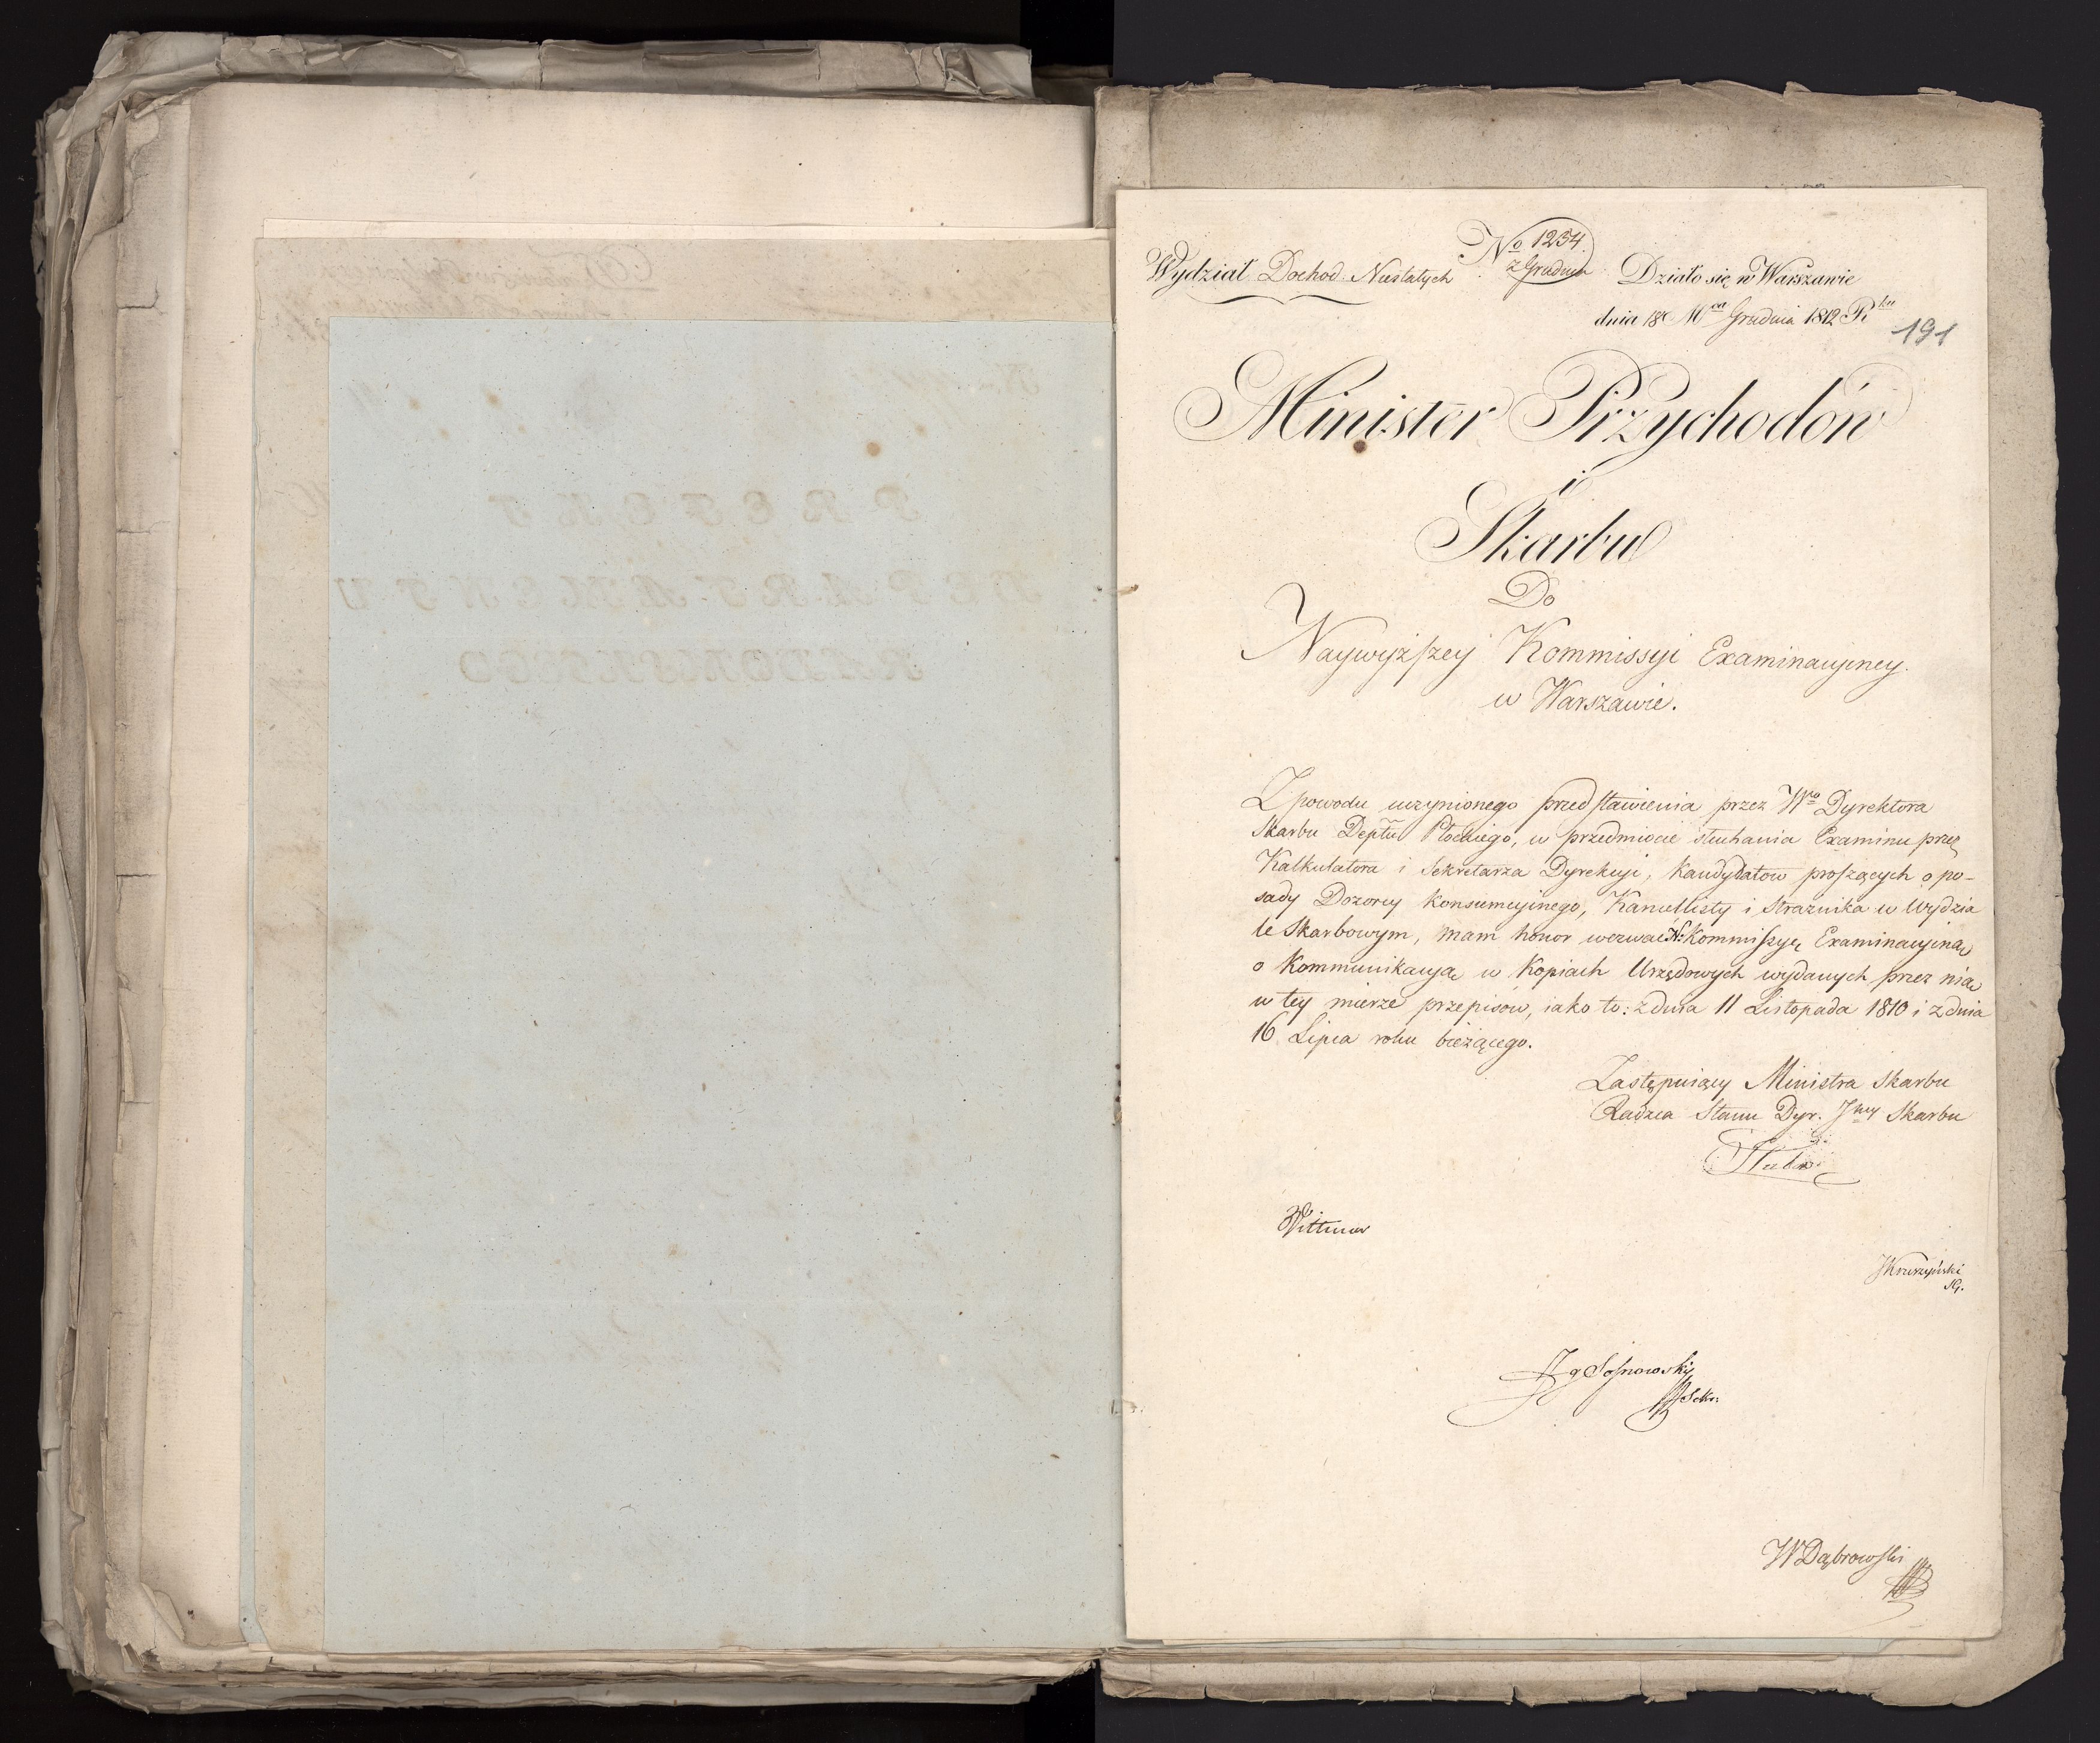 Wydział Dochod: Niestałych
No 1234.
z Grudnia
Działo się w Warszawie
dnia 18o Mca Grudnia 1812 Rku
191
Minister Przychodów
i
Skarbu
Do
Naywyższey Kommissyi Examinacyiney.
w Warszawie.
Z powodu uczynionego przedstawienia przez Wgo Dyrektora
Skarbu Deptu Płockiego, w przedmiocie słuchania Examinu przez
Kalkulatora i Sekretarza Dyrekcyi, Kandydatow proszących o po-
sady Dozorcy Konsumcyinego, Kancellisty i Straznika w Wydzia
le Skarbowym, mam honor wezwać N: Kommissyę Examinacyiną
o Kommunikacyą w Kopiach Urzędowych wydanych przez nią
w tey mierze przepisów, iako to: z dnia 11 Listopada 1810 i z dnia
16 Lipca roku bieżącego.
Zastępuiący Ministra Skarbu
Radzca Stanu Dyr. Jlny Skarbu
Wittman
JKruszyński
SG.
Ig Sosnowski
Sekr:
WDąbrowski
PREFEKT
DEPARTAMENTU
RADOMSKIEGO